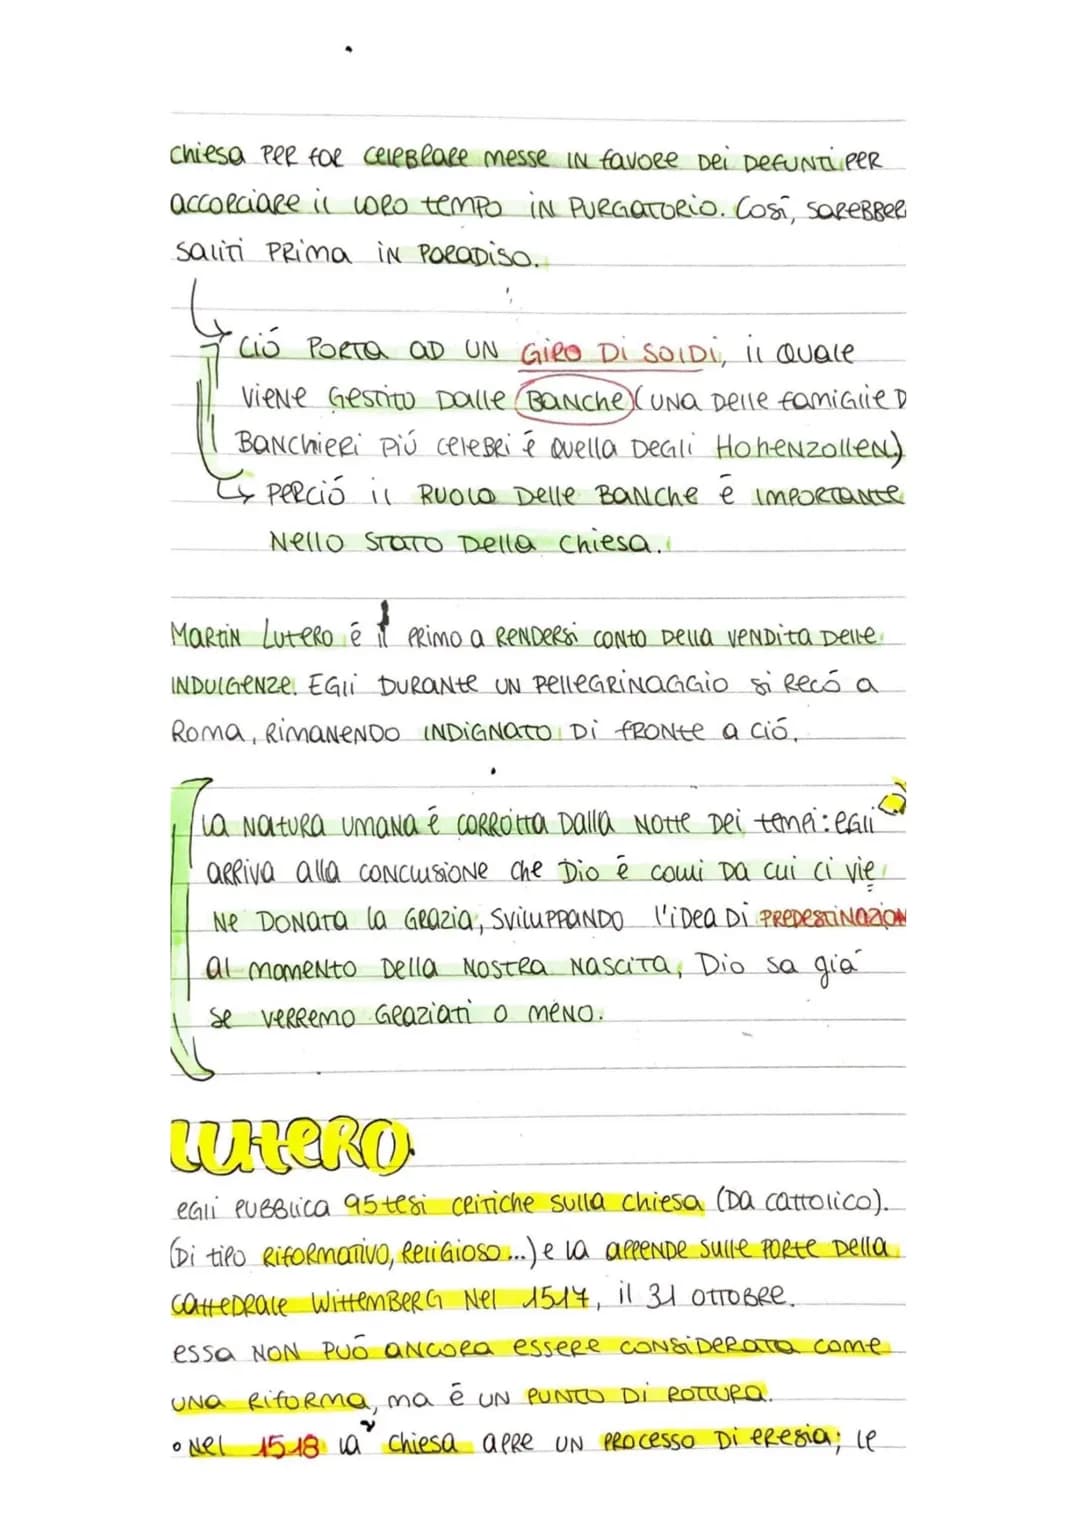 chiesa per far celebrare messe in favore dei defunti per
accorciare il loro tempo in purgatorio. Così, sarebber
saliti prima in paradiso.
Ció porta ad un giro di soldi, il quale
viene gestito dalle banche (una delle famiglie d
banchieri piú celebri é quella degli Hohenzollen)
perció il ruolo delle banche é importante
nello stato della chiesa.
Martin Lutero é il primo a rendersi conto della vendita delle
indulgenze. Egli durante un pellegrinaggio si recó a
Roma, rimanendo indignato di fronte a ció.
la natura umana é corrotta dalla notte dei tempi: egli
arriva alla conclusione che Dio é colui da cui ci vie
ne donata la grazia, sviluppando l'idea di predestinazion
al momento della nostra nascita, Dio sa giá
se verremo graziati o meno.
LUTERO
egli pubblica 95 tesi critiche sulla chiesa (da cattolico).
(Di tipo riformativo, religioso...) e la appende sulle porte della
cattedrale Wittemberg nel 1517, il 31 ottobre.
essa non puó ancora essere considerata come
una riforma, ma é un punto di rottura.
• Nel 1518 la chiesa apre un processo di eresia; le